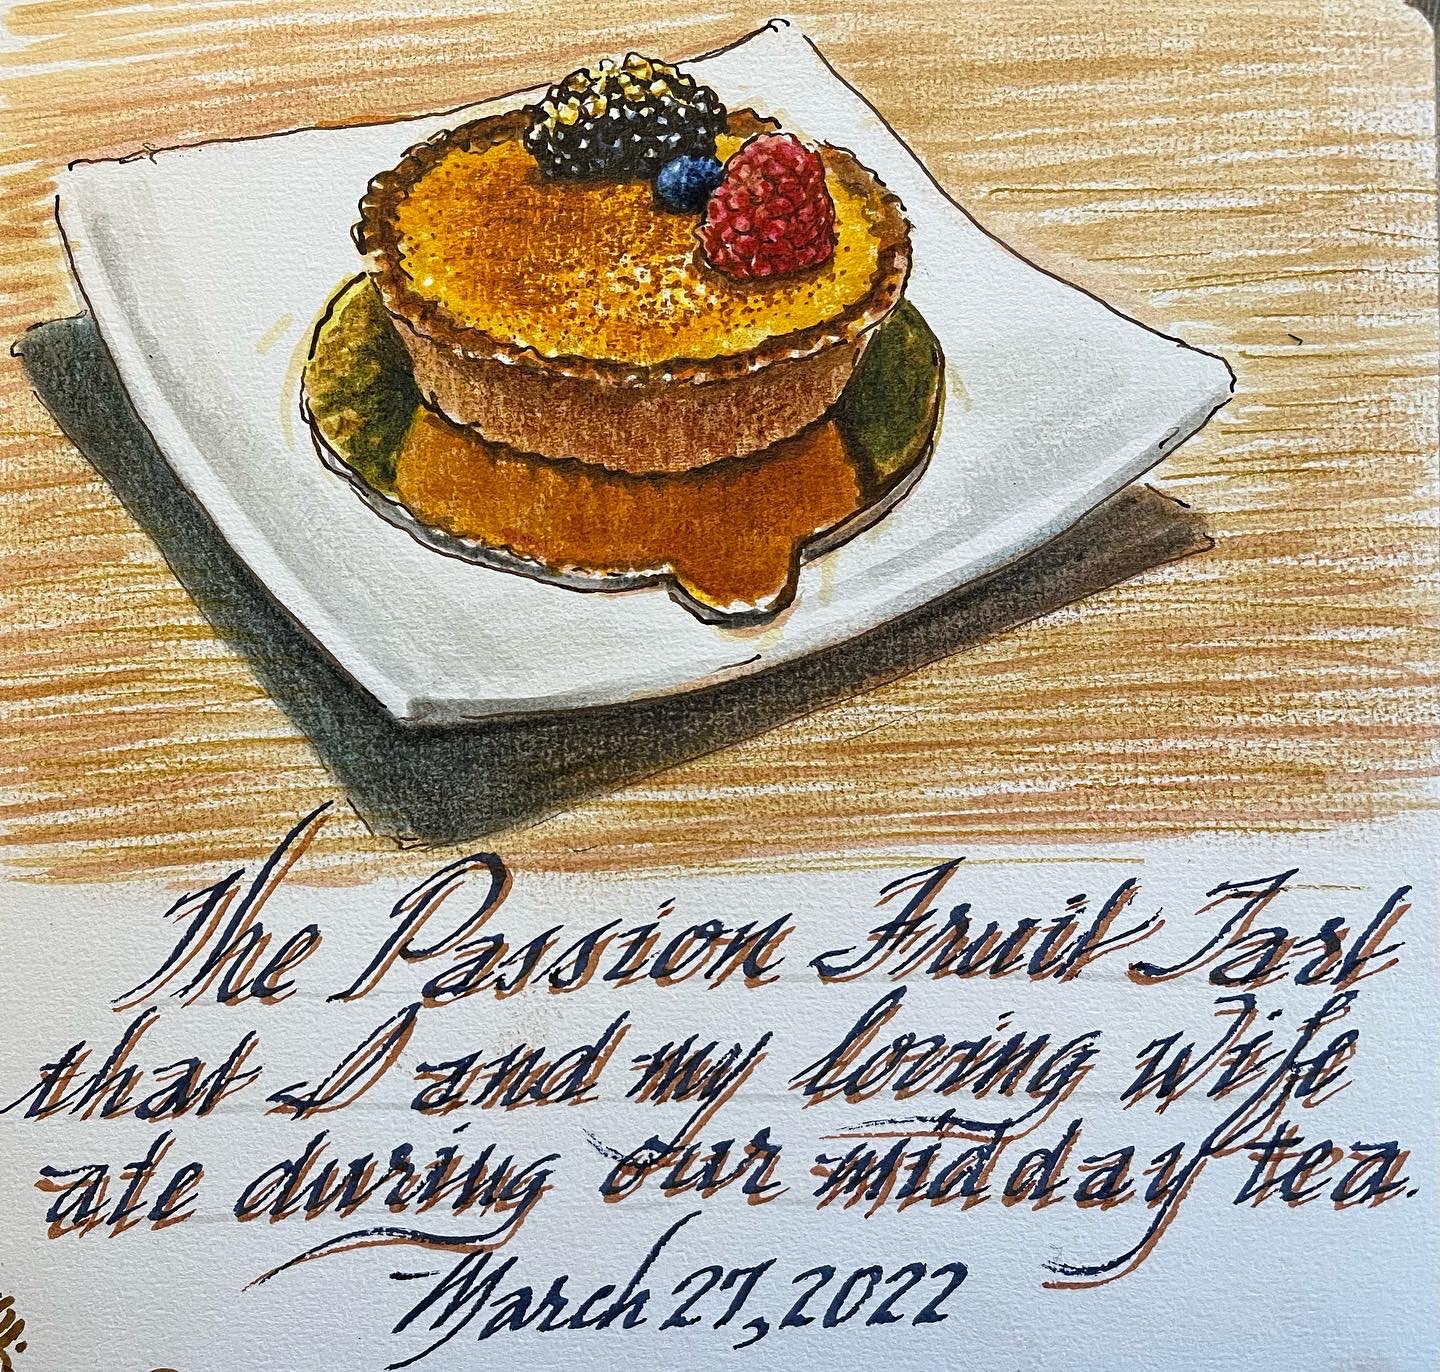 The Passion Fruit Tart
that I and my loving wife
ate during our midday tea.
March 27, 2022